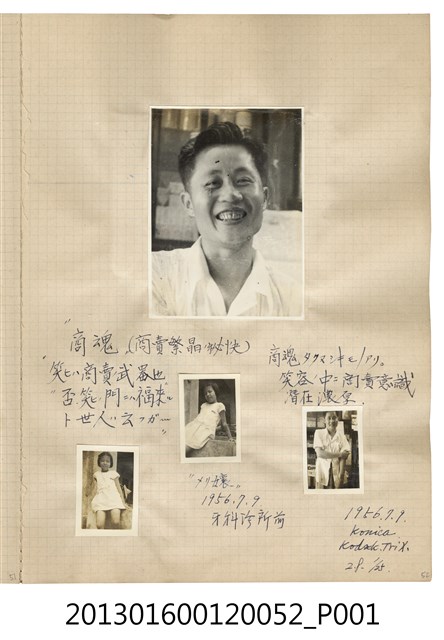 商魂 (商賣繁晶秘快)
笑ヒハ商賣武器也
"否笑門ニハ福来"
ト世人ハ云フガ—"
商魂タクマシキモノアリ。
笑容ノ中ニ商賣意識
潜在
"メリ嬢"
1956.7.9
牙科診所前
1956.7.9.
Konica
Kodak Tri X.
2.8. 1/25
201301600120052_P001